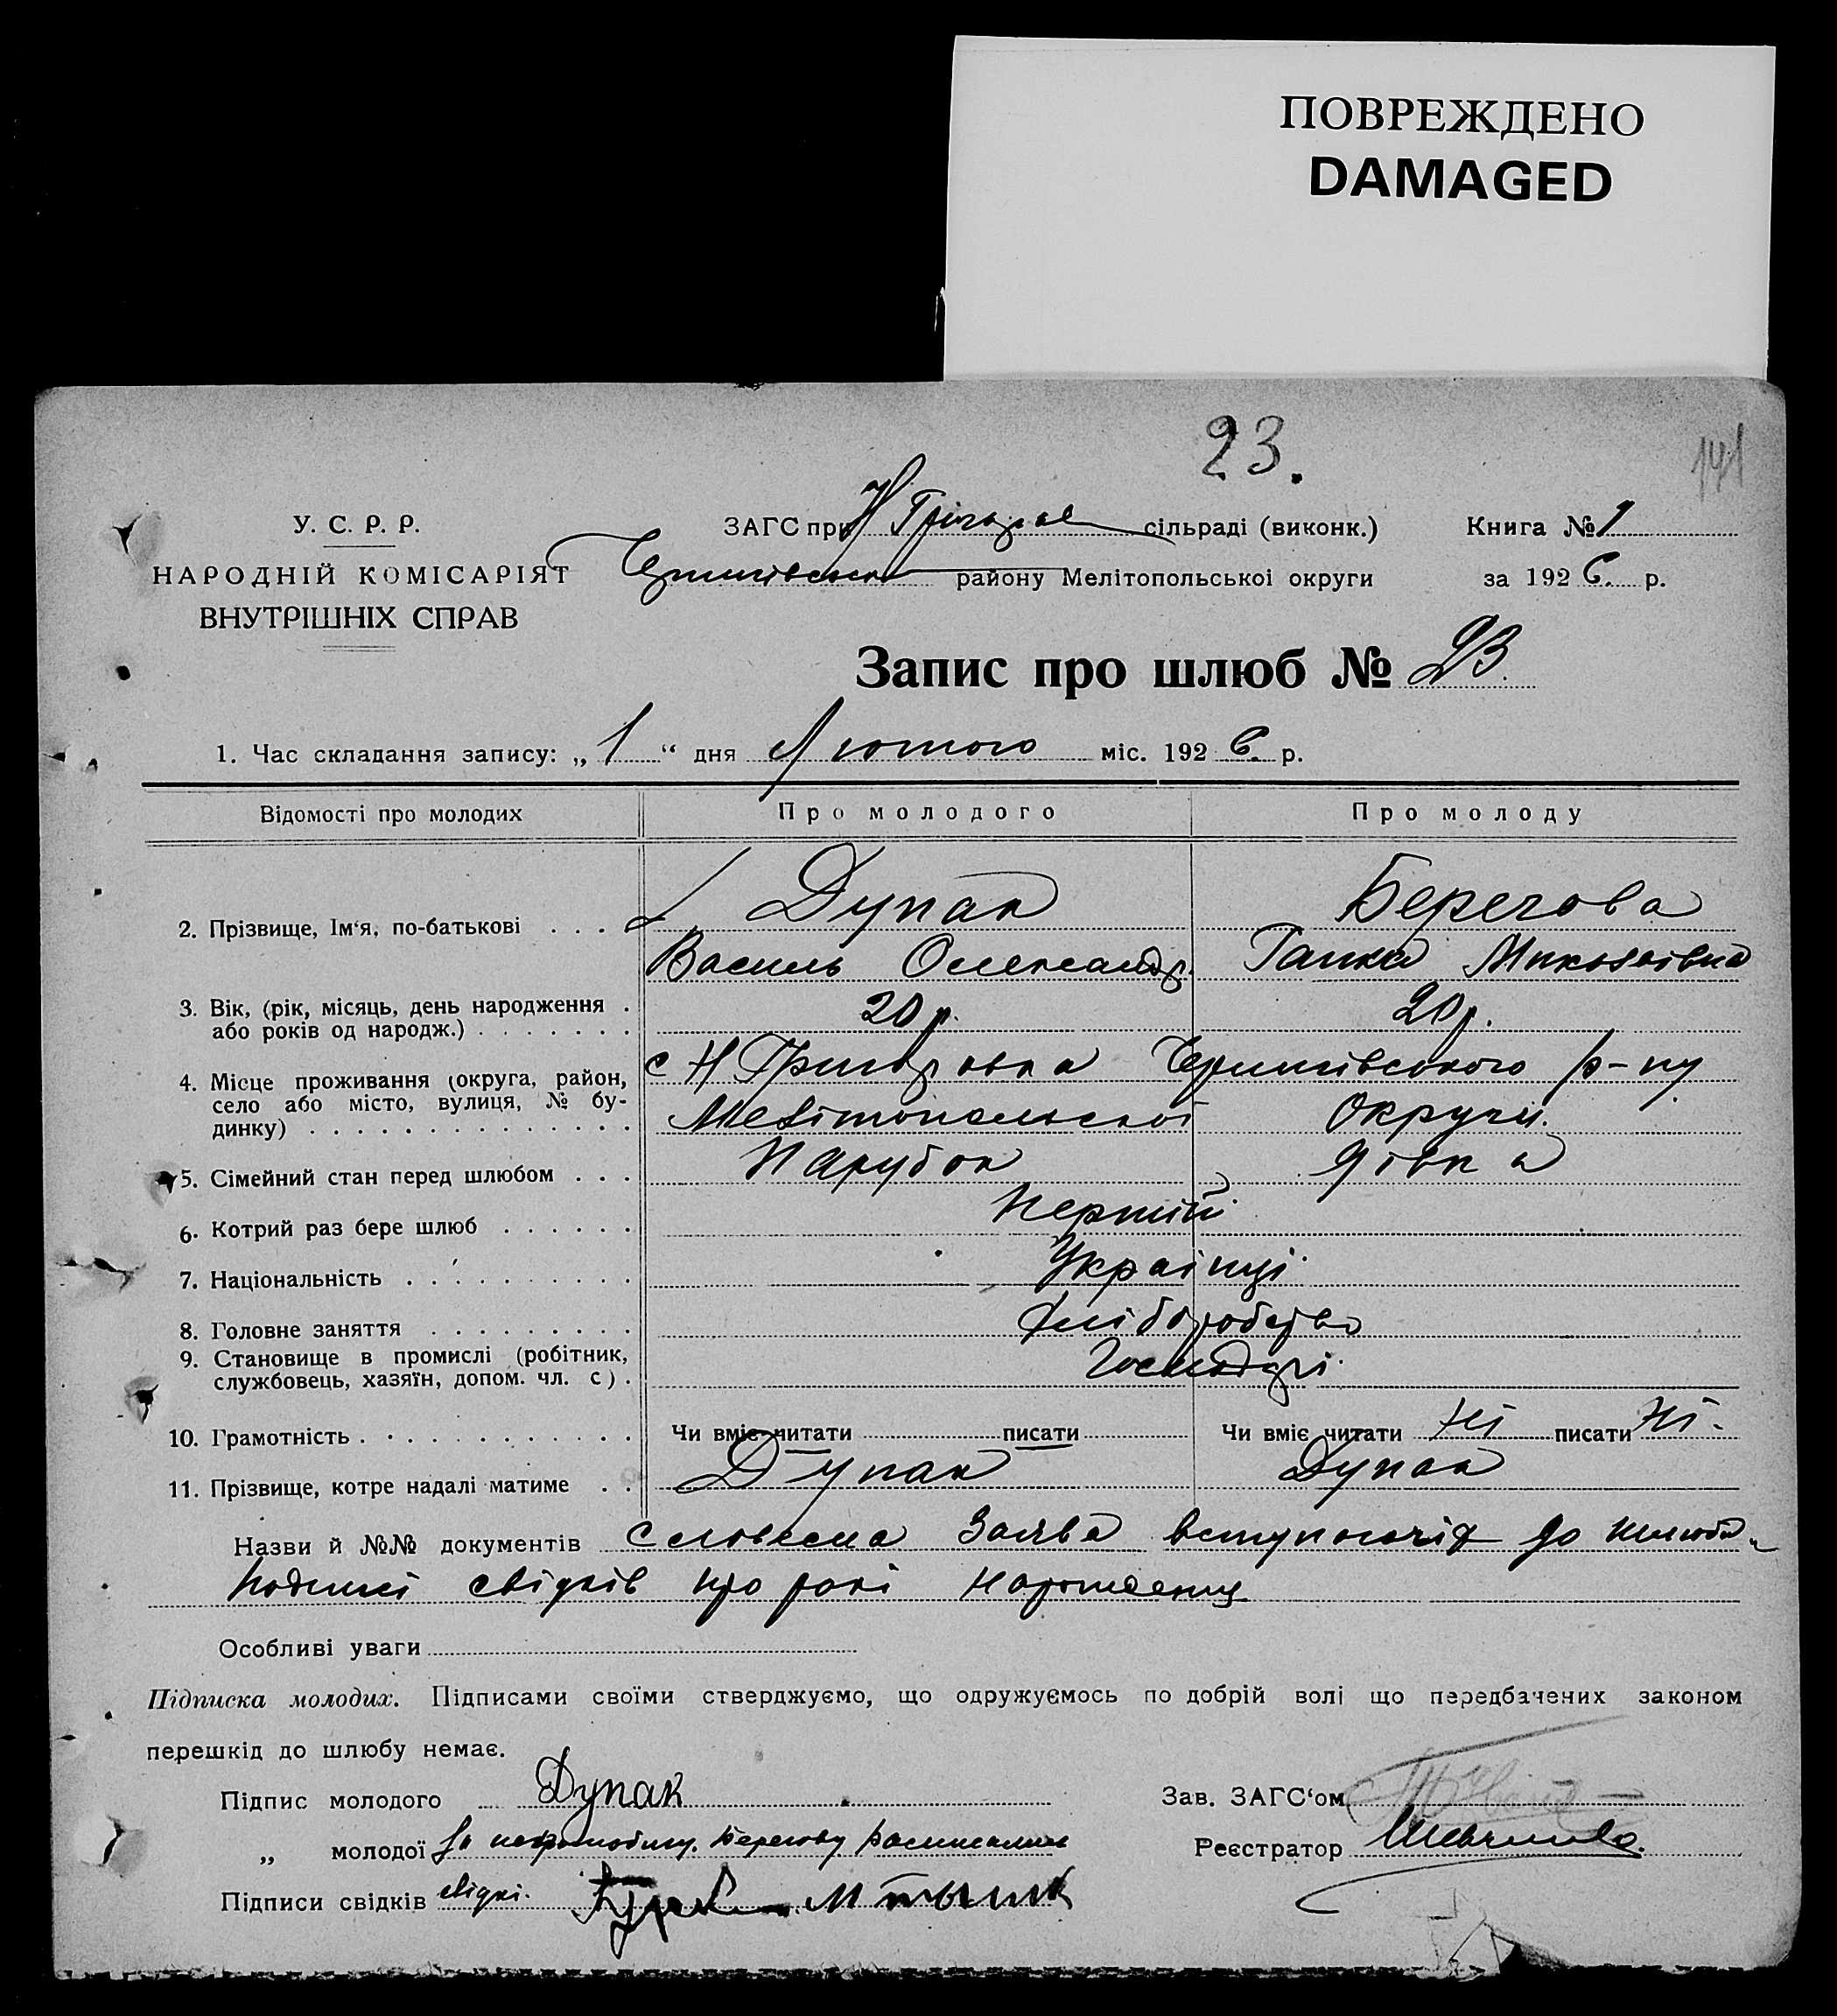 ПОВРЕЖДЕНО
DAMAGED
23.
141
У. С. Р. Р.
ЗАГС при Н Григоров сільраді (виконк.)
Книга № 1
НАРОДНІЙ КОМІСАРІЯТ
Чернигівсько району Мелітопольської округи
за 1926. р.
ВНУТРІШНІХ СПРАВ
Запис про шлюб № 23.
1. Час складання запису: „ 1 “ дня Лютого міс. 1926. р.
Відомості про молодих
Про молодого
Про молоду
2. Прізвище, Ім‘я, по-батькові . . .
Дупак
Берегова
Василь Олександр.
Ганна Миколаівна
3. Вік, (рік, місяць, день народження .
або років од народж.) . . . . . . .
20 р.
20 р.
4. Місце проживання (округа, район,
село або місто, вулиця, № бу-
динку) . . . . . . . . . . . . . .
с Н Григоровка Чернигівського р-ну
Мелітопольської Округи.
5. Сімейний стан перед шлюбом . . .
Парубок
Дівка
6. Котрий раз бере шлюб . . . . . .
Перший
7. Національність . . . . . . . . . .
Українці
8. Головне заняття . . . . . . . . .
Хліборобство
9. Становище в промислі (робітник,
службовець, хазяїн, допом. чл. с) .
Господарі.
10. Грамотність . . . . . . . . . . . .
Чи вміє читати писати
Чи вміє читати Ні писати Ні.
11. Прізвище, котре надалі матиме . .
Дупак
Дупак
Назви й №№ документів словесна заява вступаючіх до шлюба
свідків про рокі нарождения
Особливі уваги
Підписка молодих. Підписами своїми стверджуємо, що одружуємось по добрій волі що передбачених законом
перешкід до шлюбу немає.
Підпис молодого Дупак
Зав. ЗАГС‘ом
„ молодої За неграмотну. Берегову
Реєстратор
Підписи свідків свідкі.